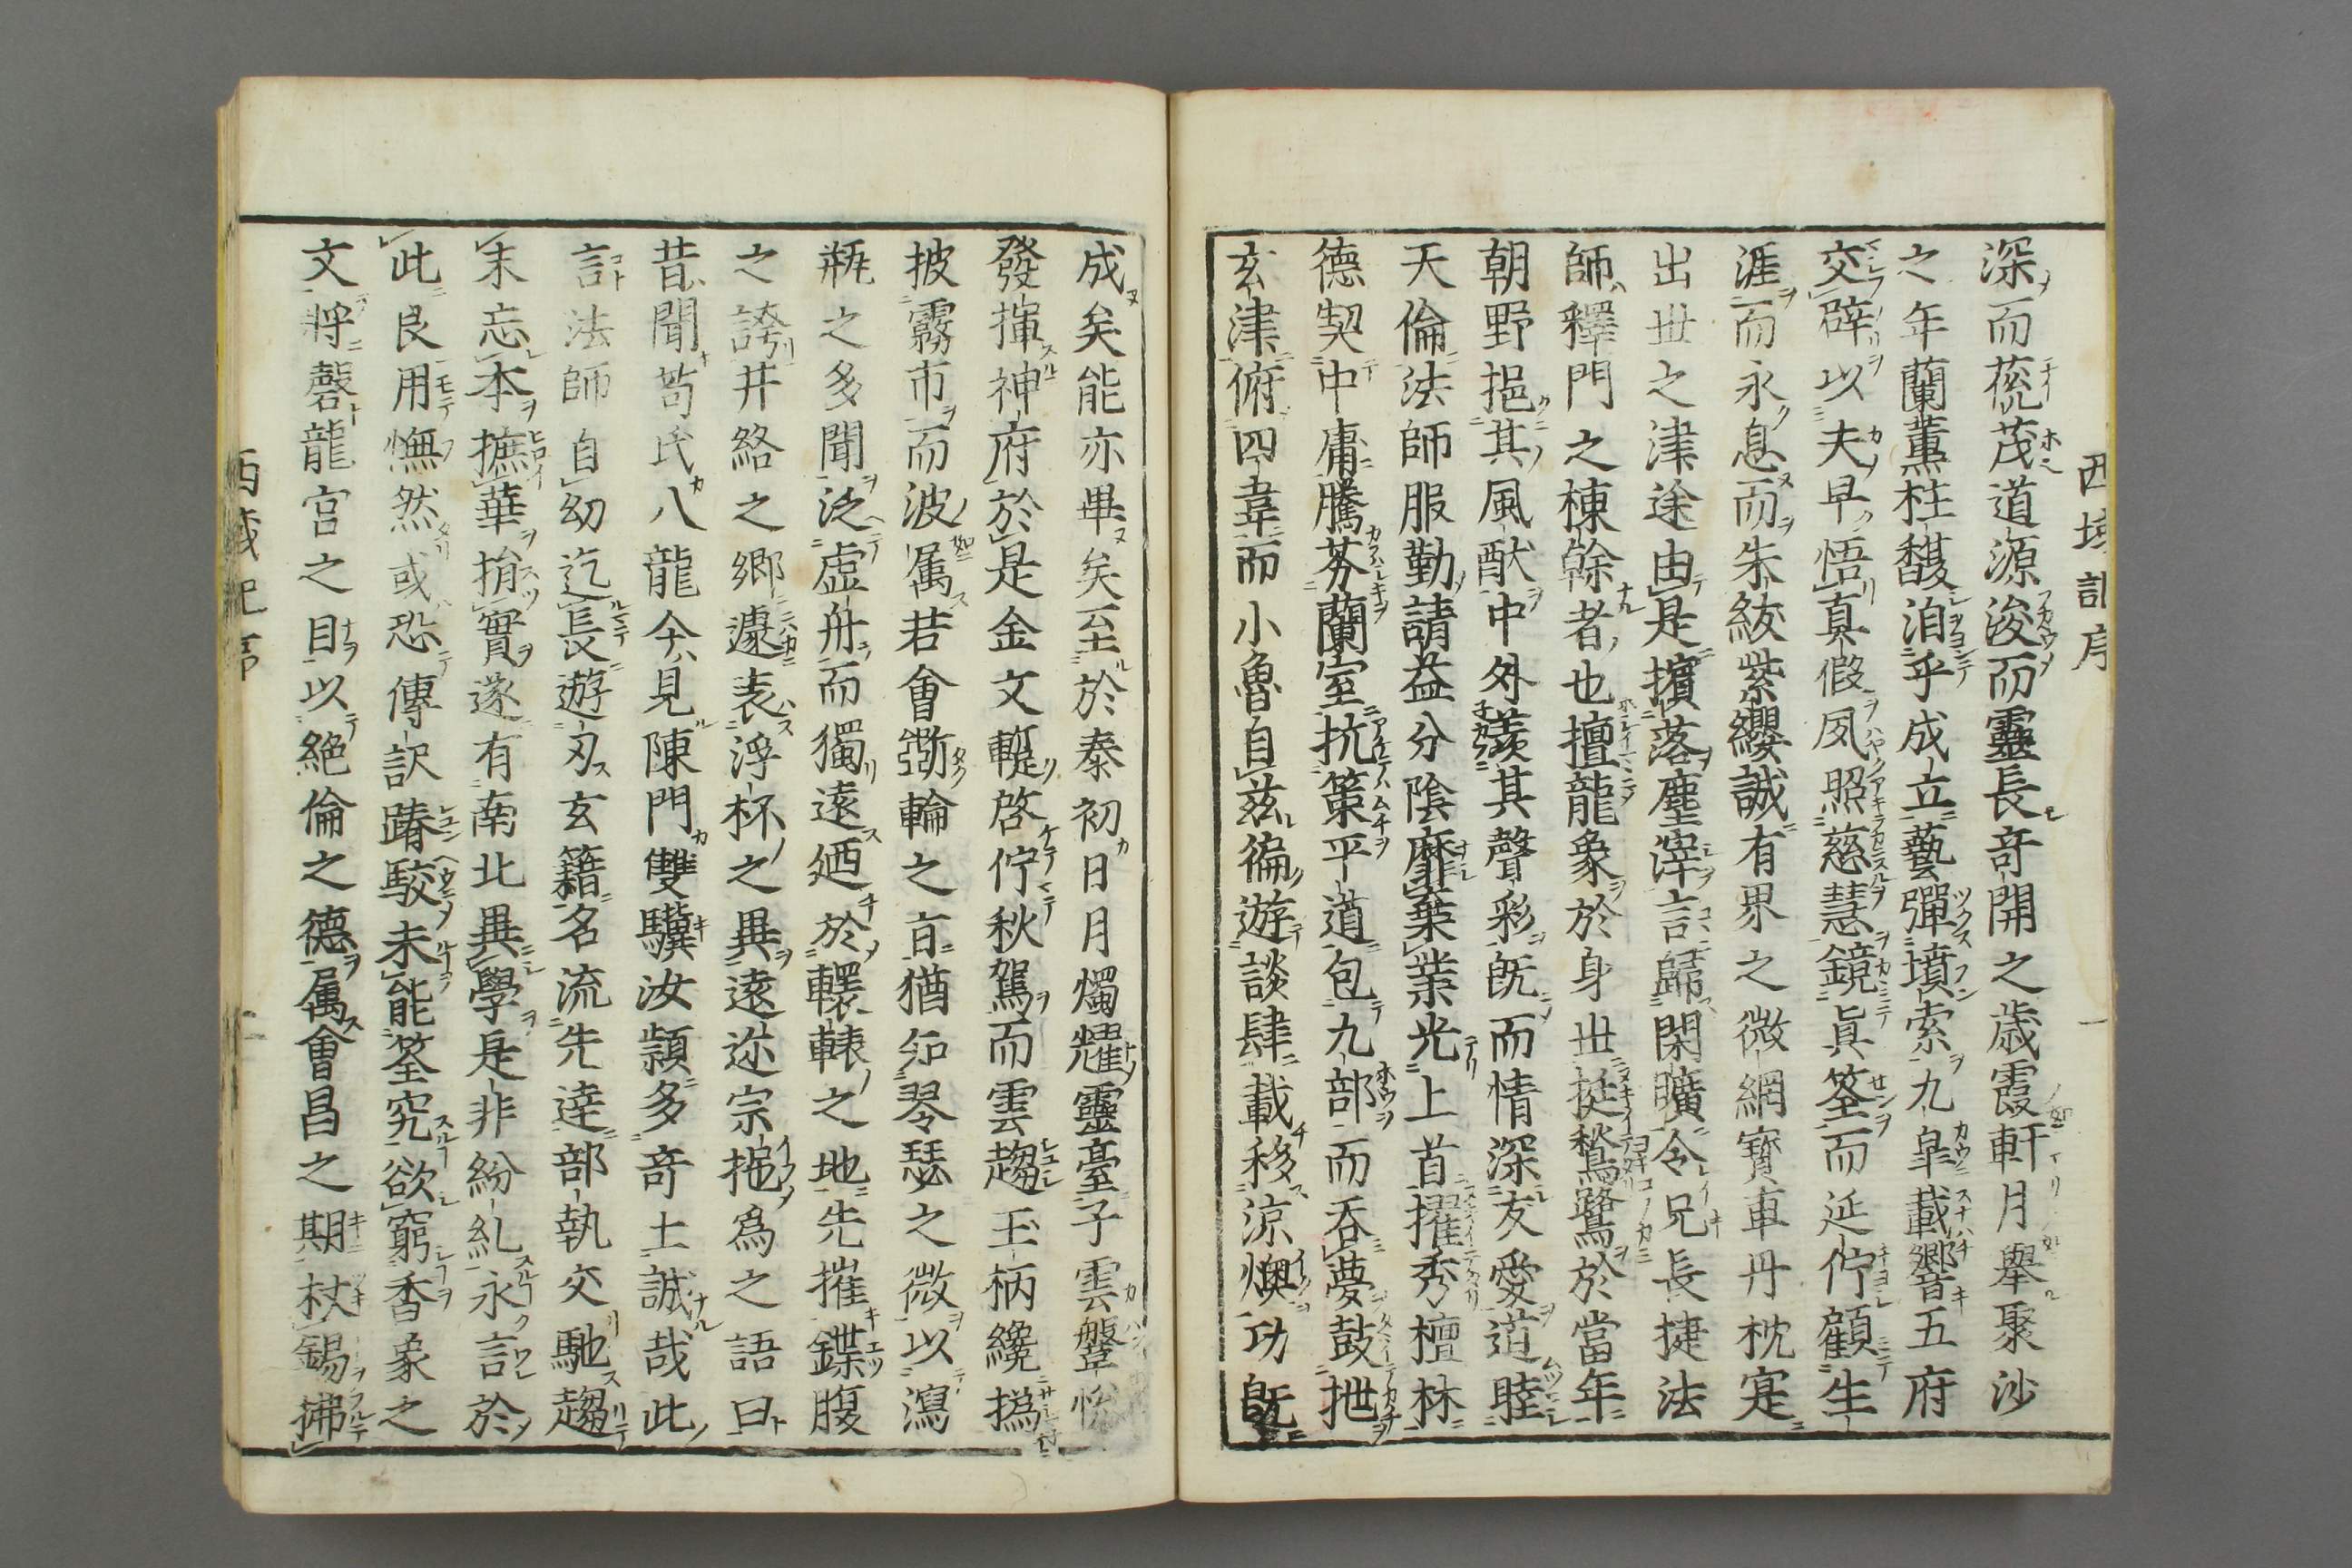 西域記序 一
深而蓯茂道源浚而靈長竒開之歳霞軒月舉聚沙
之年蘭薫桂馥洎乎成立藝殫墳索九皐載響五府
交辟以夫早悟真假夙照慈慧鏡眞筌而延佇顧生
涯而永息而朱紱紫纓誠有界之微網寳車丹枕寔
出丗之津途由是擯落塵滓言歸閑曠令兄長捷法
師釋門之棟幹者也擅龍象於身丗挺鶖鷺於當年
朝野挹其風猷中外羨其聲彩旣而情深友愛道睦
天倫法師服勤請益分陰靡棄業光上首擢秀檀林
德契中庸騰芬蘭室抗策平道包九部而吞夢鼓抴
玄津俯四韋而小魯自兹徧遊談肆載移涼燠功旣
成矣能亦畢矣至於泰初日月燭耀靈臺子雲鞶帨
發揮神府於是金文蹔啓佇秋駕而雲趨玉柄纔撝
披霧市而波属若會斲輪之㫖猶知琴瑟之微以瀉
瓶之多聞泛虛舟而獨遠廼於轘轅之地先摧鍱腹
之誇井絡之郷遽表浮杯之異遠迩宗挹爲之語曰
昔聞荀氏八龍今見陳門雙驥汝頴多竒士誠哉此
言法師自幼迄長遊刃玄籍名流先達部執交馳趨
末忘本摭華捐實遂有南北異學是非紛糺永言於
此良用憮然或恐傳訳踳駮未能筌究欲窮香象之
文將罄龍宮之目以絶倫之德属會昌之期杖錫拂
西域記序 二